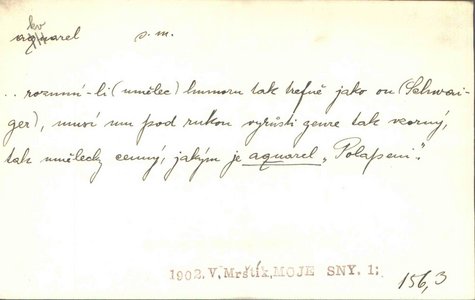 kv
aquarel s. m.
.. rozumí-li (umělec) humoru tak trefně jako on (Schwai-
ger), musí mu pod rukou vyrůsti genre tak vzorný,
tak umělecky cenný, jakým je aquarel „Polapeni".
1902. V. Mrštík, MOJE SNY. 1:
156,3